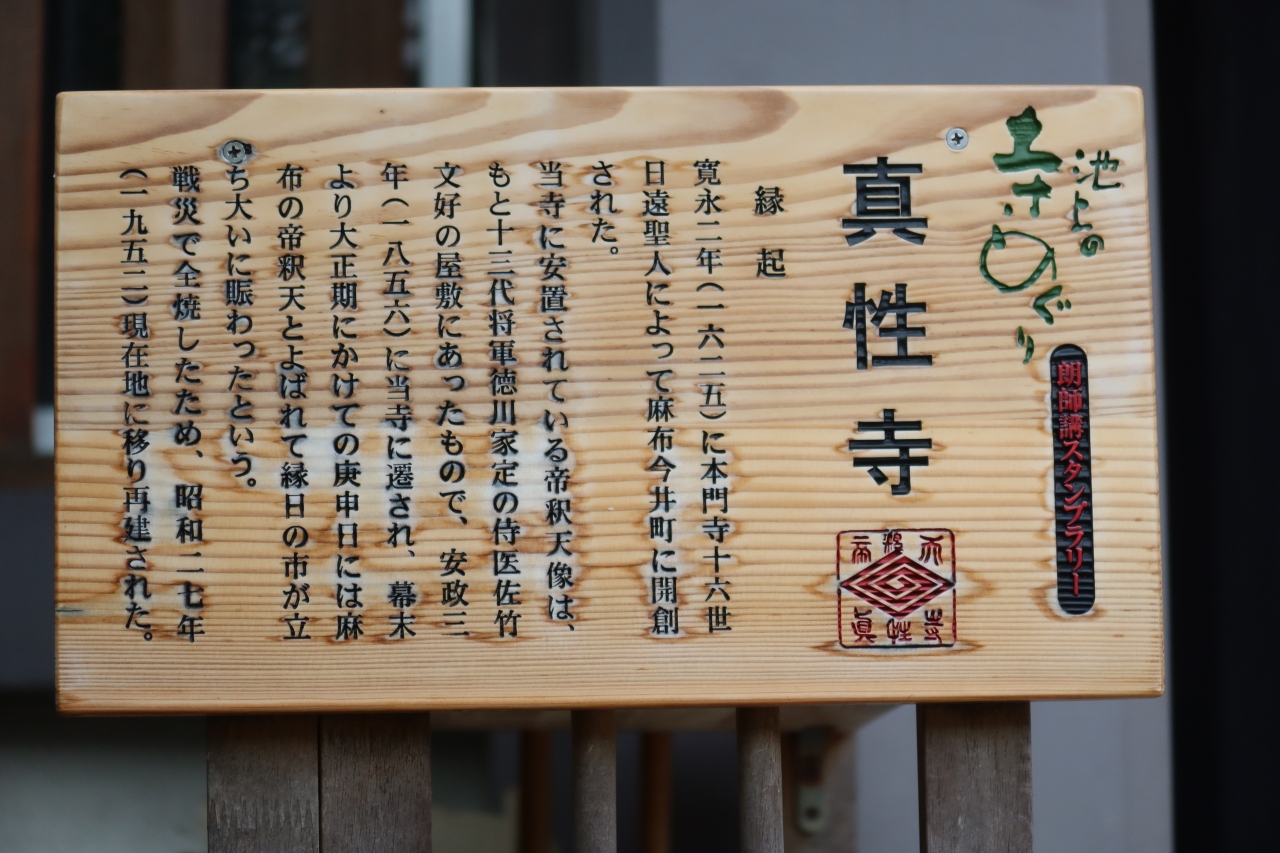 池上の
寺めぐり
朗師講スタンプラリー
真性寺
帝釈天
眞性寺
縁起
寛永二年(一六二五)に本門寺十六世
日遠聖人によって麻布今井町に開創
された。
当寺に安置されている帝釈天像は、
もと十三代将軍徳川家定の侍医佐竹
文好の屋敷にあったもので、安政三
年(一八五六)に当寺に遷され、幕末
より大正期にかけての庚申日には麻
布の帝釈天とよばれて縁日の市が立
ち大いに賑わったという。
戦災で全焼したため、昭和二七年
(一九五二)現在地に移り再建された。